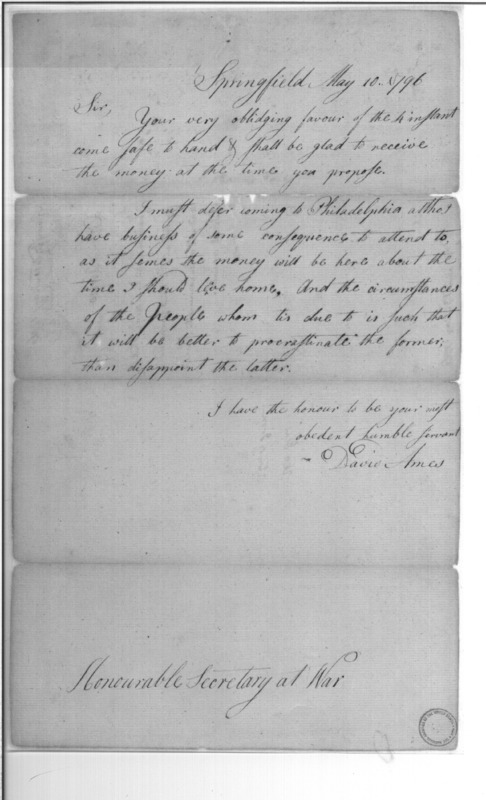 Springfield May 10. 1796
Sir,
Your very oblidging favour of the 4 instant
come safe to hand & shall be glad to receive
the money at the time you propose.
I must defer coming to Philadelphia altho I
have business of some consequence to attend to,
as it semes the money will be here about the
time I should leve home. And the circumstances
of the People whom tis due to is such that
it will be better to procrastinate the former,
than disappoint the latter.
I have the honour to be your most
obedent humble servant
David Ames
Honourable Secretary at War